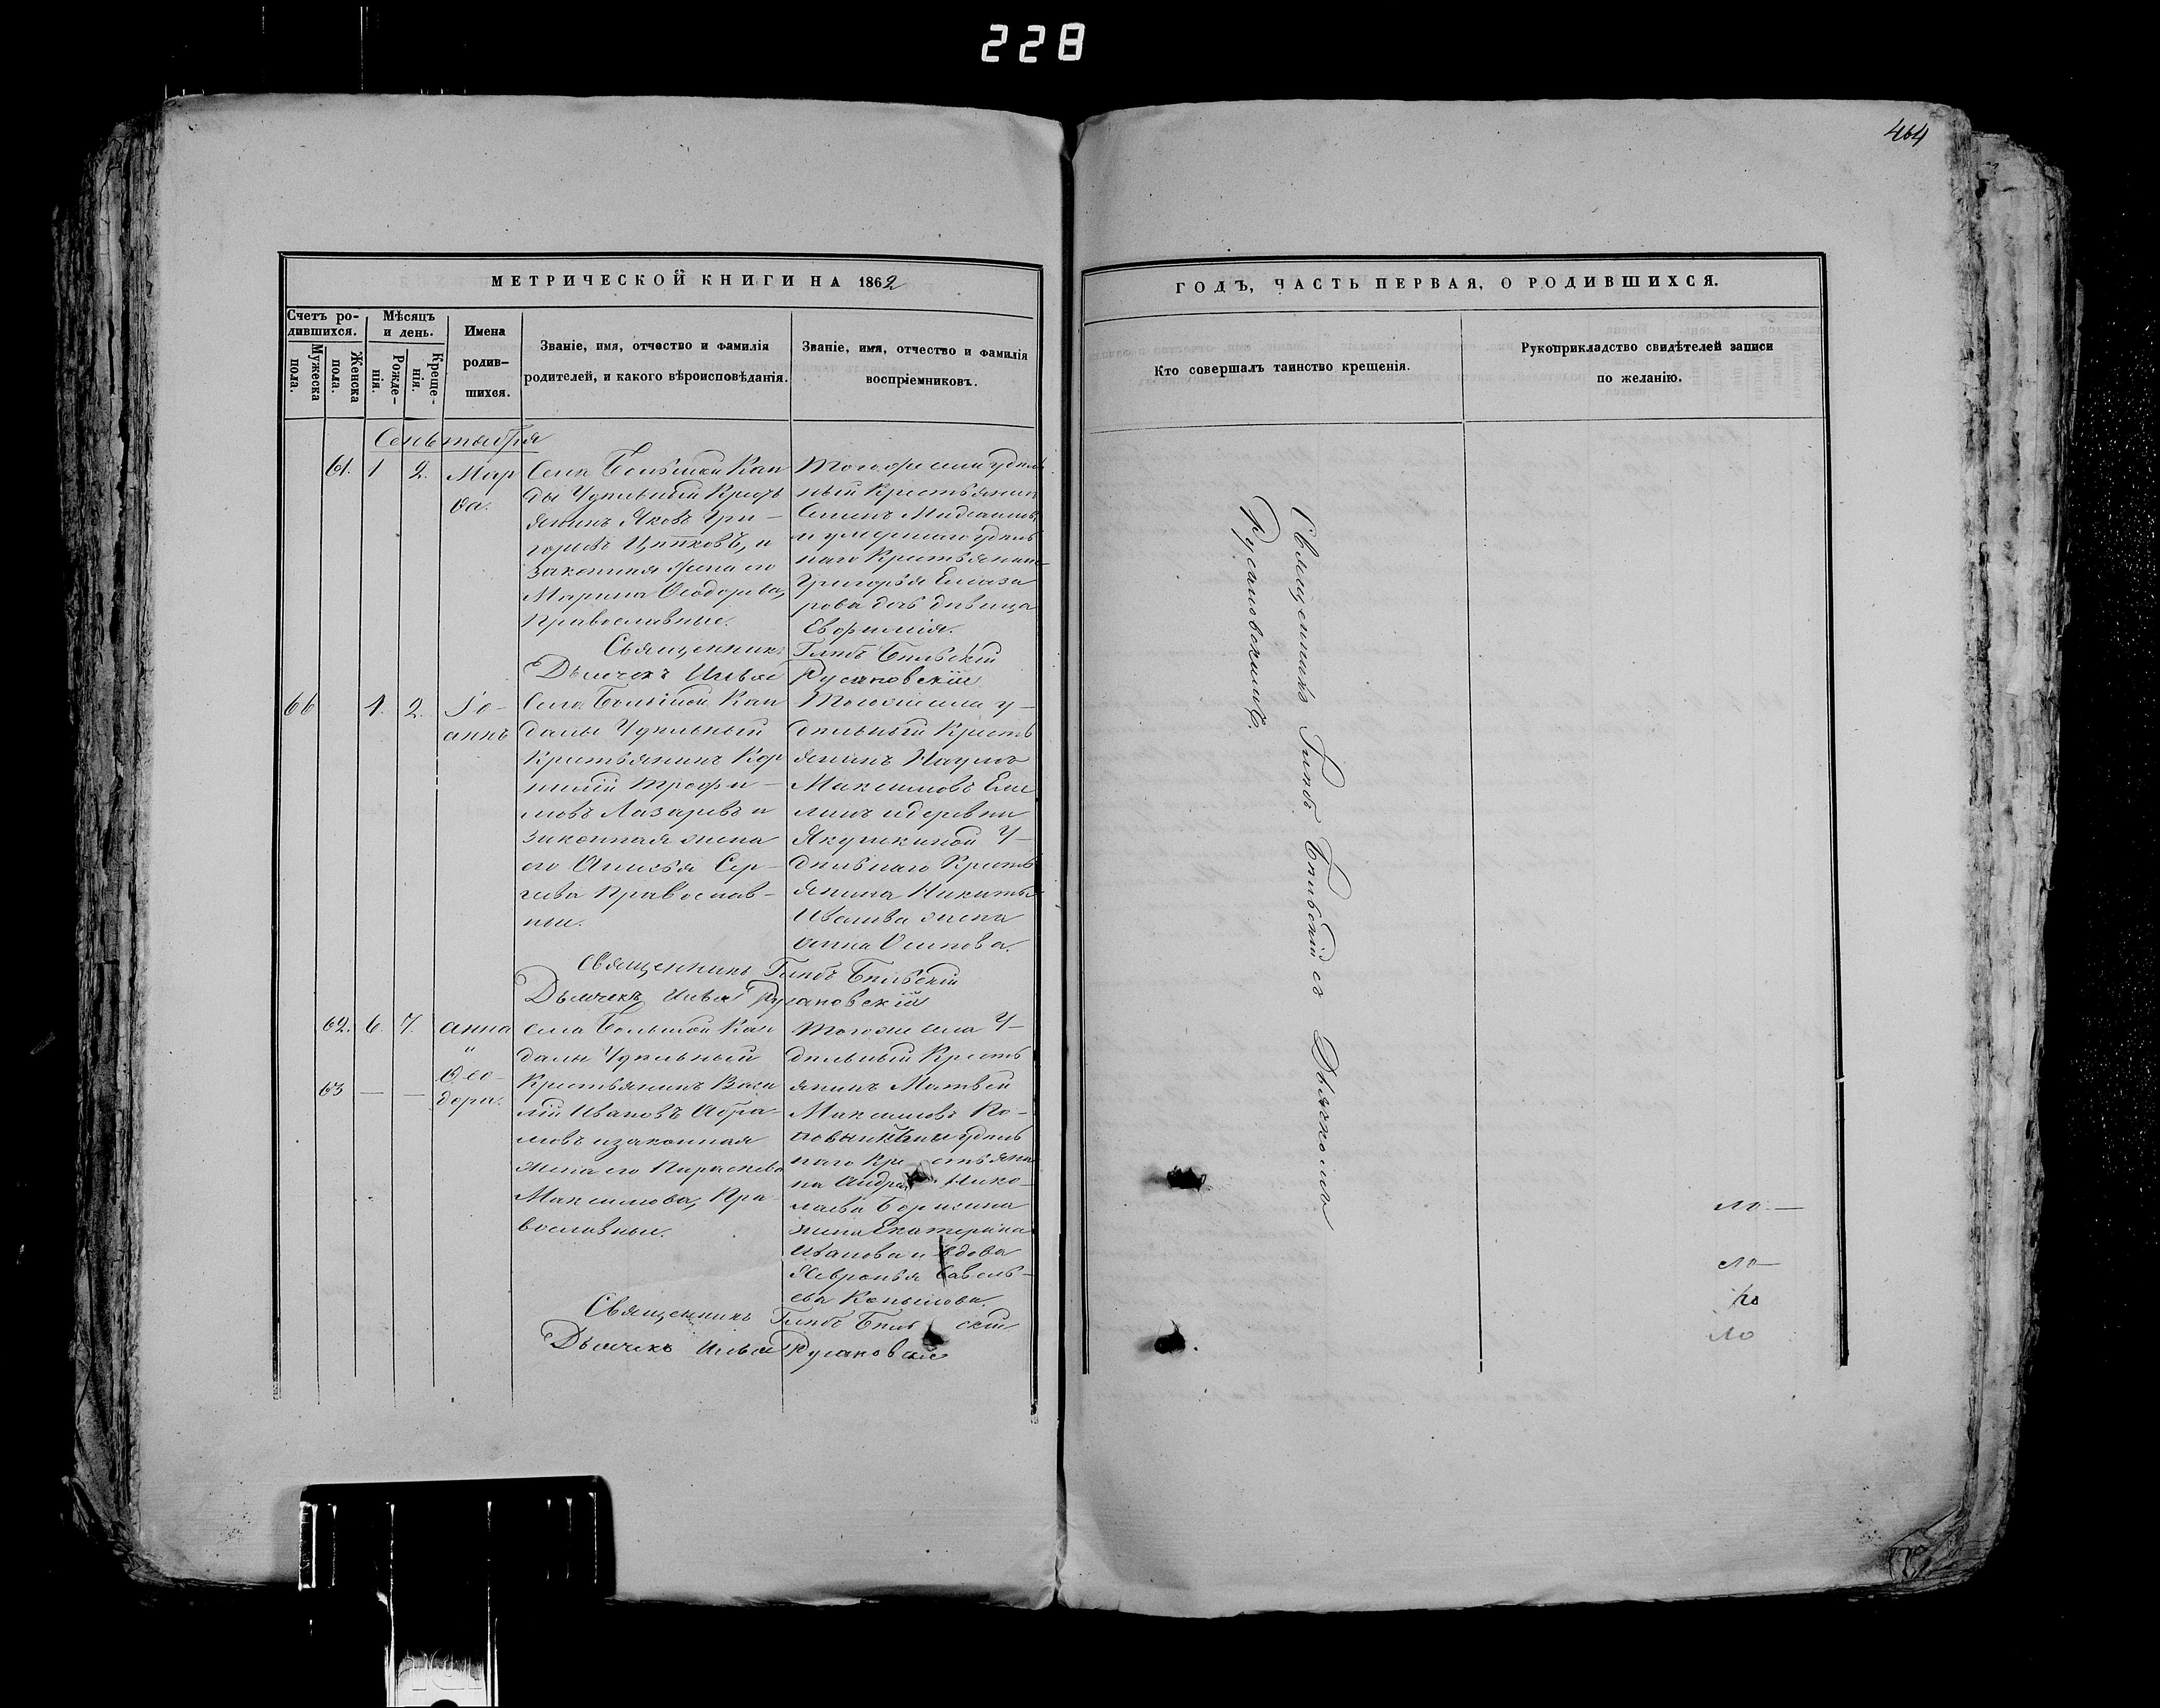 228
464
МЕТРИЧЕСКОЙ КНИГИ НА 1862
ГОДЪ, ЧАСТЬ ПЕРВАЯ, О РОДИВШИХСЯ.
Счетъ ро-
дившихся.
Мужеска
пола.
Женска
пола.
Мѣсяцъ
и день.
Рожде-
нія.
Креще-
нія.
Имена
родив-
шихся.
Званіе, имя, отчество и фамилія
родителей, и какого вѣроисповѣданія.
Званіе, имя, отчество и фамилія
воспріемниковъ.
Кто совершалъ таинство крещенія.
Рукоприкладство свидѣтелей записи
по желанію.
Сентября
61. 1 2.
Мар
ѳа.
Села Большой Кан
ды Удѣльный Кресть
янинъ Яковъ Гри-
горьевъ и
законная жена его
Марина Ѳеодорова,
Православные.
Тогоже села удѣль
ный Крестьянинъ
Семенъ
и умершаго удѣль
наго Крестьянина
Григорья Елиза
рова дочь дѣвица
Евфимія.
Священникъ Глѣбъ Бѣльскій
Дьячекъ Илья Русановскій
66 1. 2.
Іо-
аннъ
Села Большой Кан
далы Удѣльный
Крестьянинъ Кор
нилій Трофи-
мовъ Лазаревъ и
законная жена
его Анисья Сер-
гѣева Православ-
ные.
Тогоже села у-
дѣльный Кресть
янинъ Наумъ
Максимовъ Еме
линъ и деревни
Якушкиной У-
дѣльнаго Кресть
янина Никиты
Иванова жена
Анна Осипова.
Священникъ Глѣбъ Бѣльскій
Дьячекъ Илья Русановскій
62. 6. 7.
Анна
"
63 — —
Ѳео-
дора.
Села Большой Кан
далы Удѣльный
Крестьянинъ Васи
лій Ивановъ Абра-
мовъ и законная
жена его Параскева
Максимова, Пра-
вославные.
Тогоже села У-
дѣльный Кресть
янинъ Матвей
Максимовъ
удѣль
наго Крестьяни
на Андрея Нико-
лаева
жена Екатерина
Иванова и вдова
Февронья Савель-
ева
Священникъ Глѣбъ Бѣльскій
Дьячекъ Илья Русановскій
Священникъ Глѣбъ Бѣльскій съ Дьячкомъ
Русановскимъ.